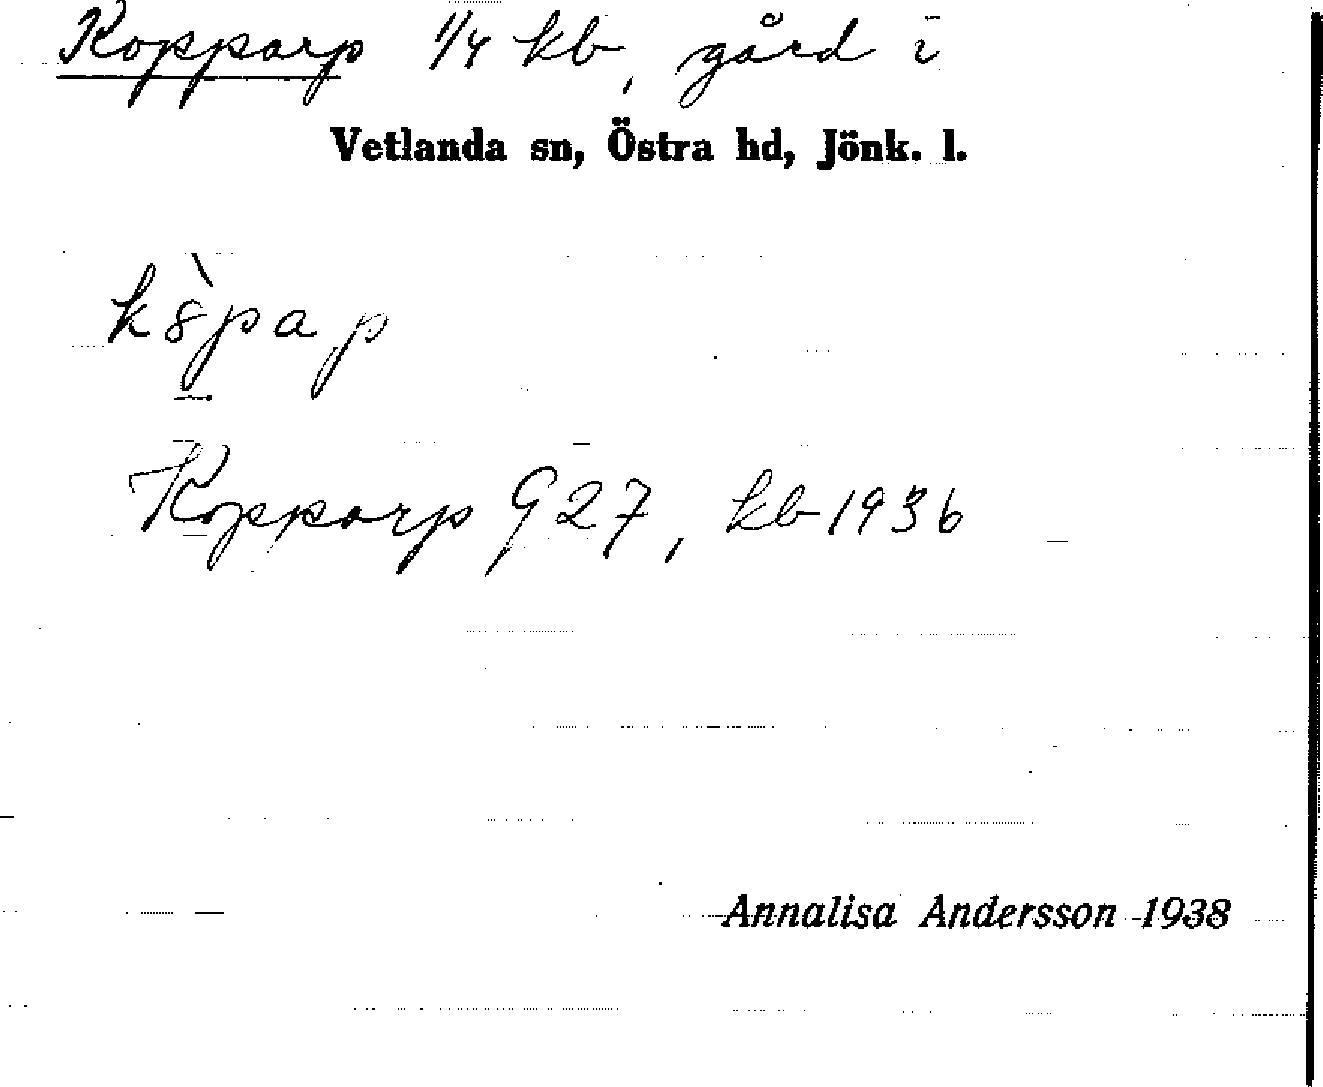 Kopparp 1/4 kb, gård i
Vetlanda sn, Östra hd, Jönk. l.
k8̀pap
Kopparp G27, kb 1936
Annalisa Andersson 1938